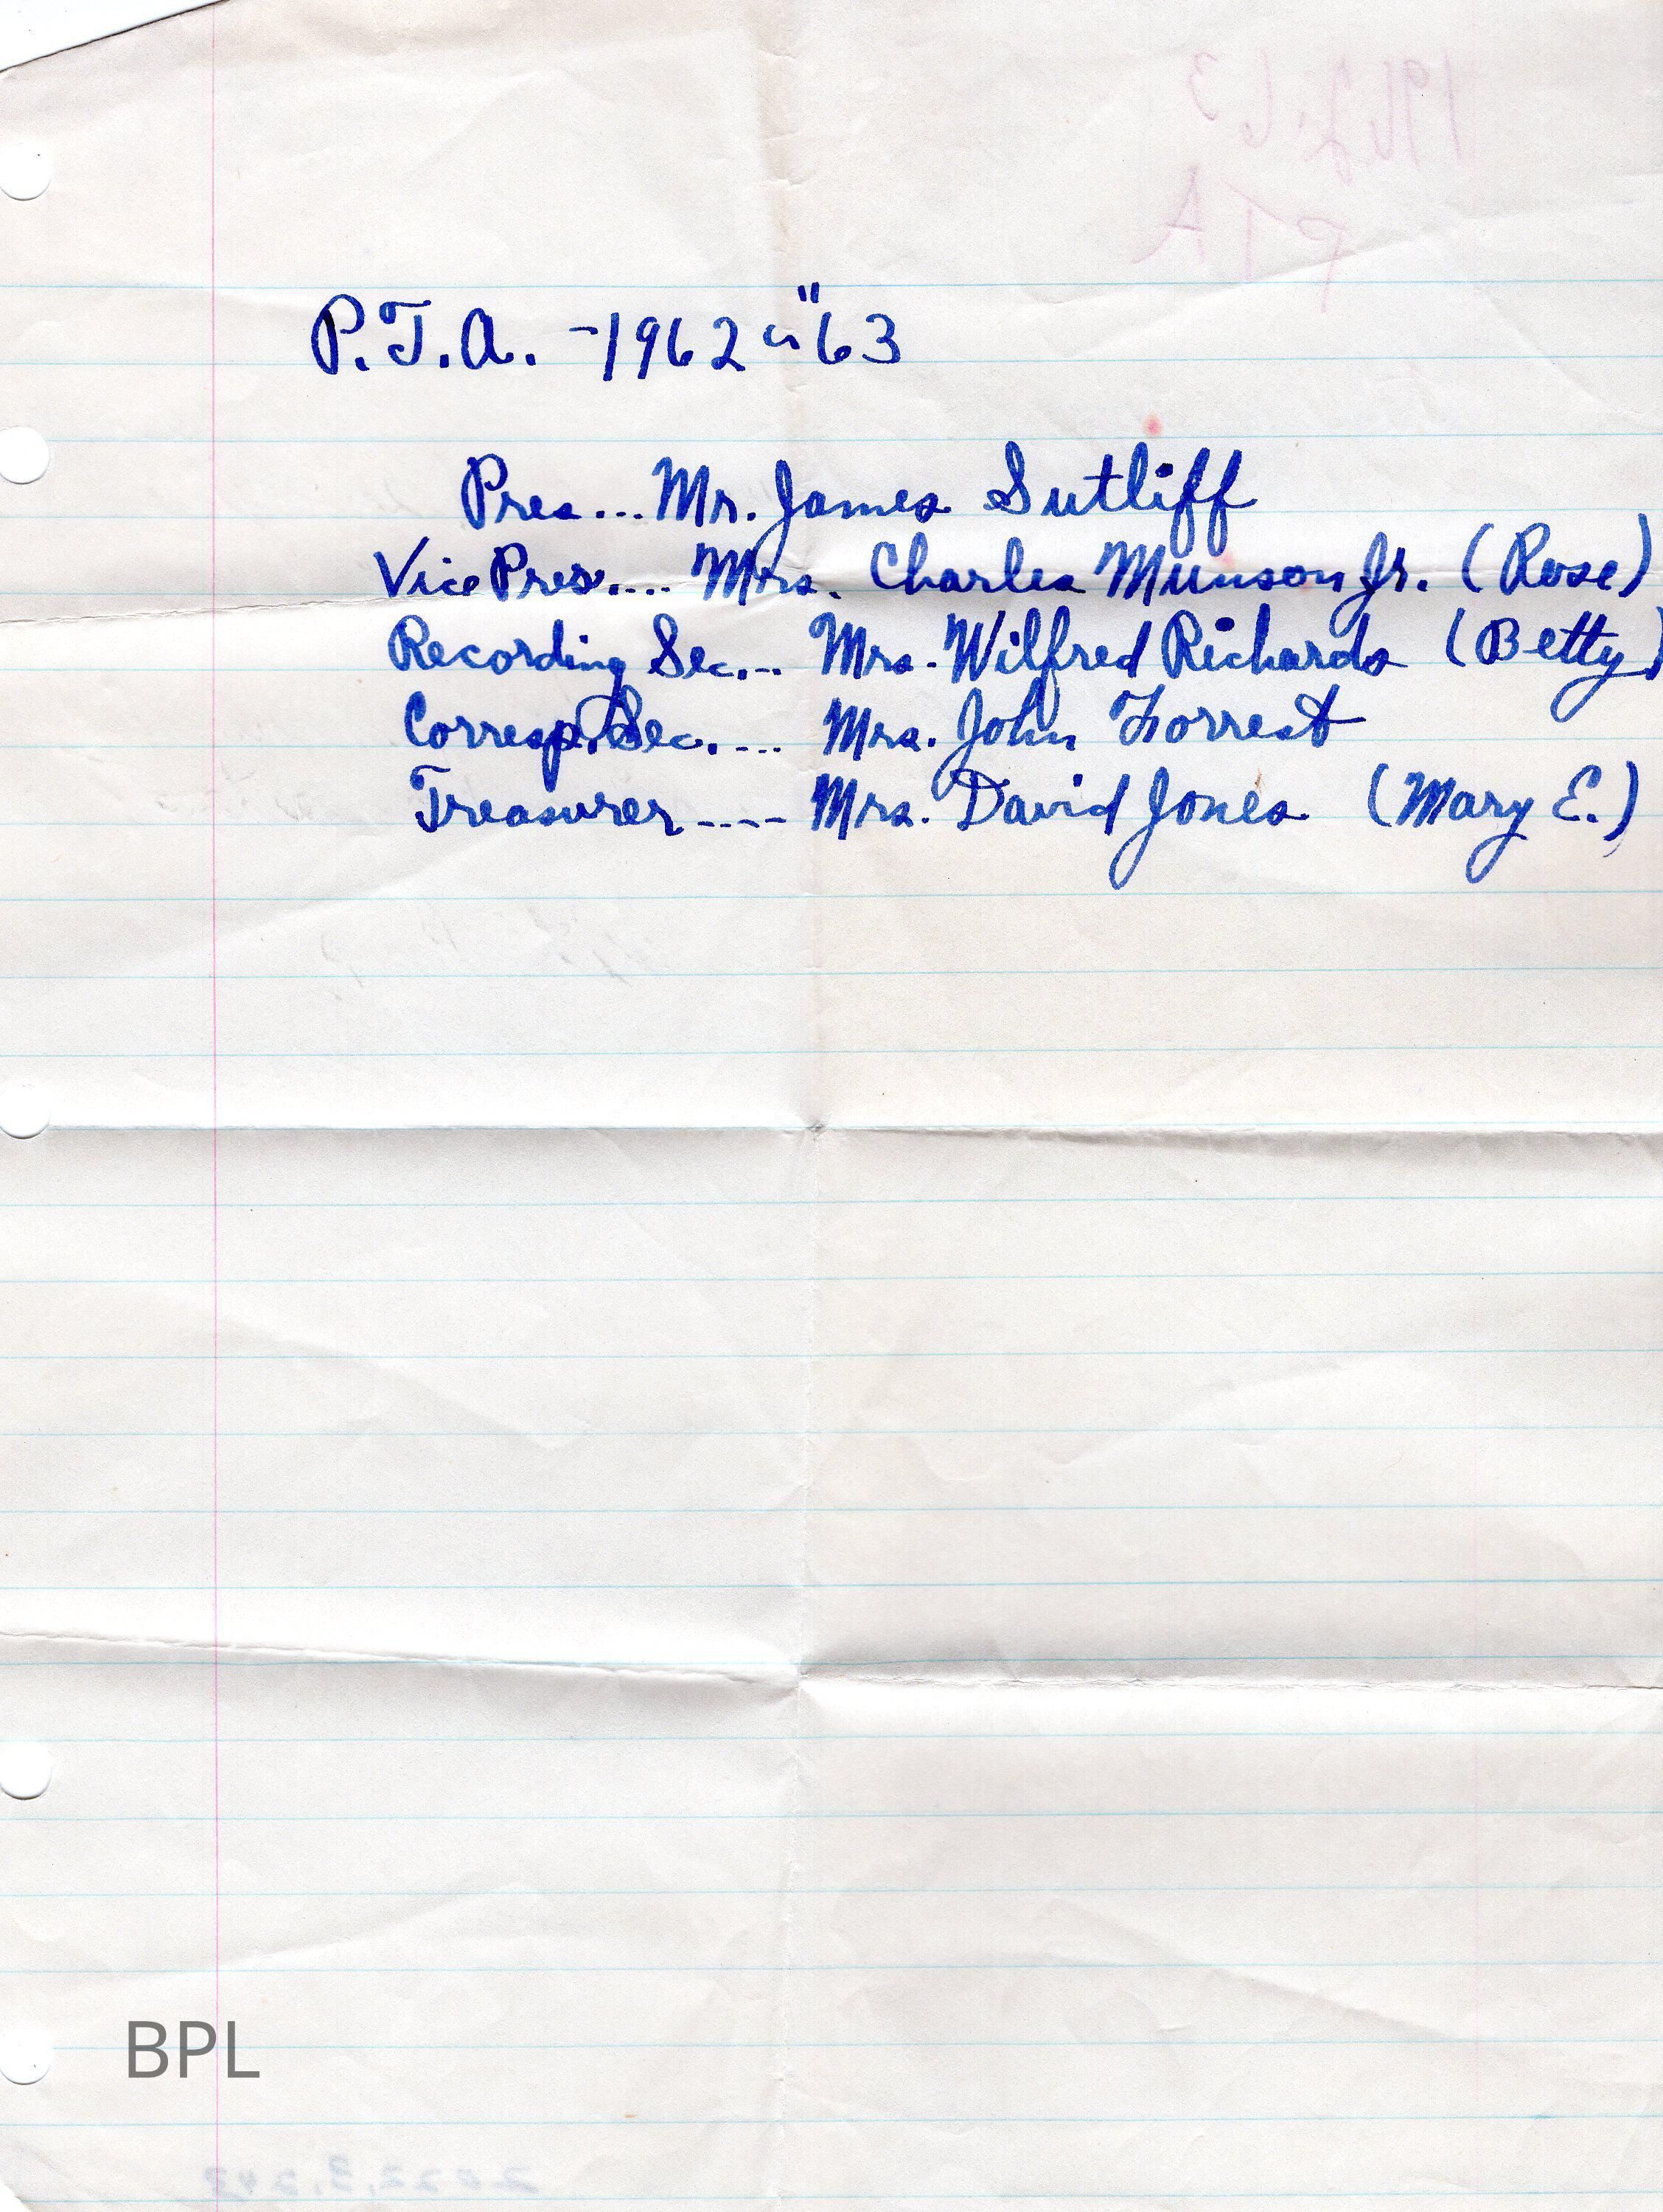 P.T.A. - 1962 " " 63
Pres... Mr. James Sutliff
Vice Pres.... Mrs. Charles Munson Jr. (Rose)
Recording Sec... Mrs. Wilfred Richards (Betty)
Corresp. Sec.... Mrs. John Forrest
Treasurer---- Mrs. David Jones (Mary E.)
BPL